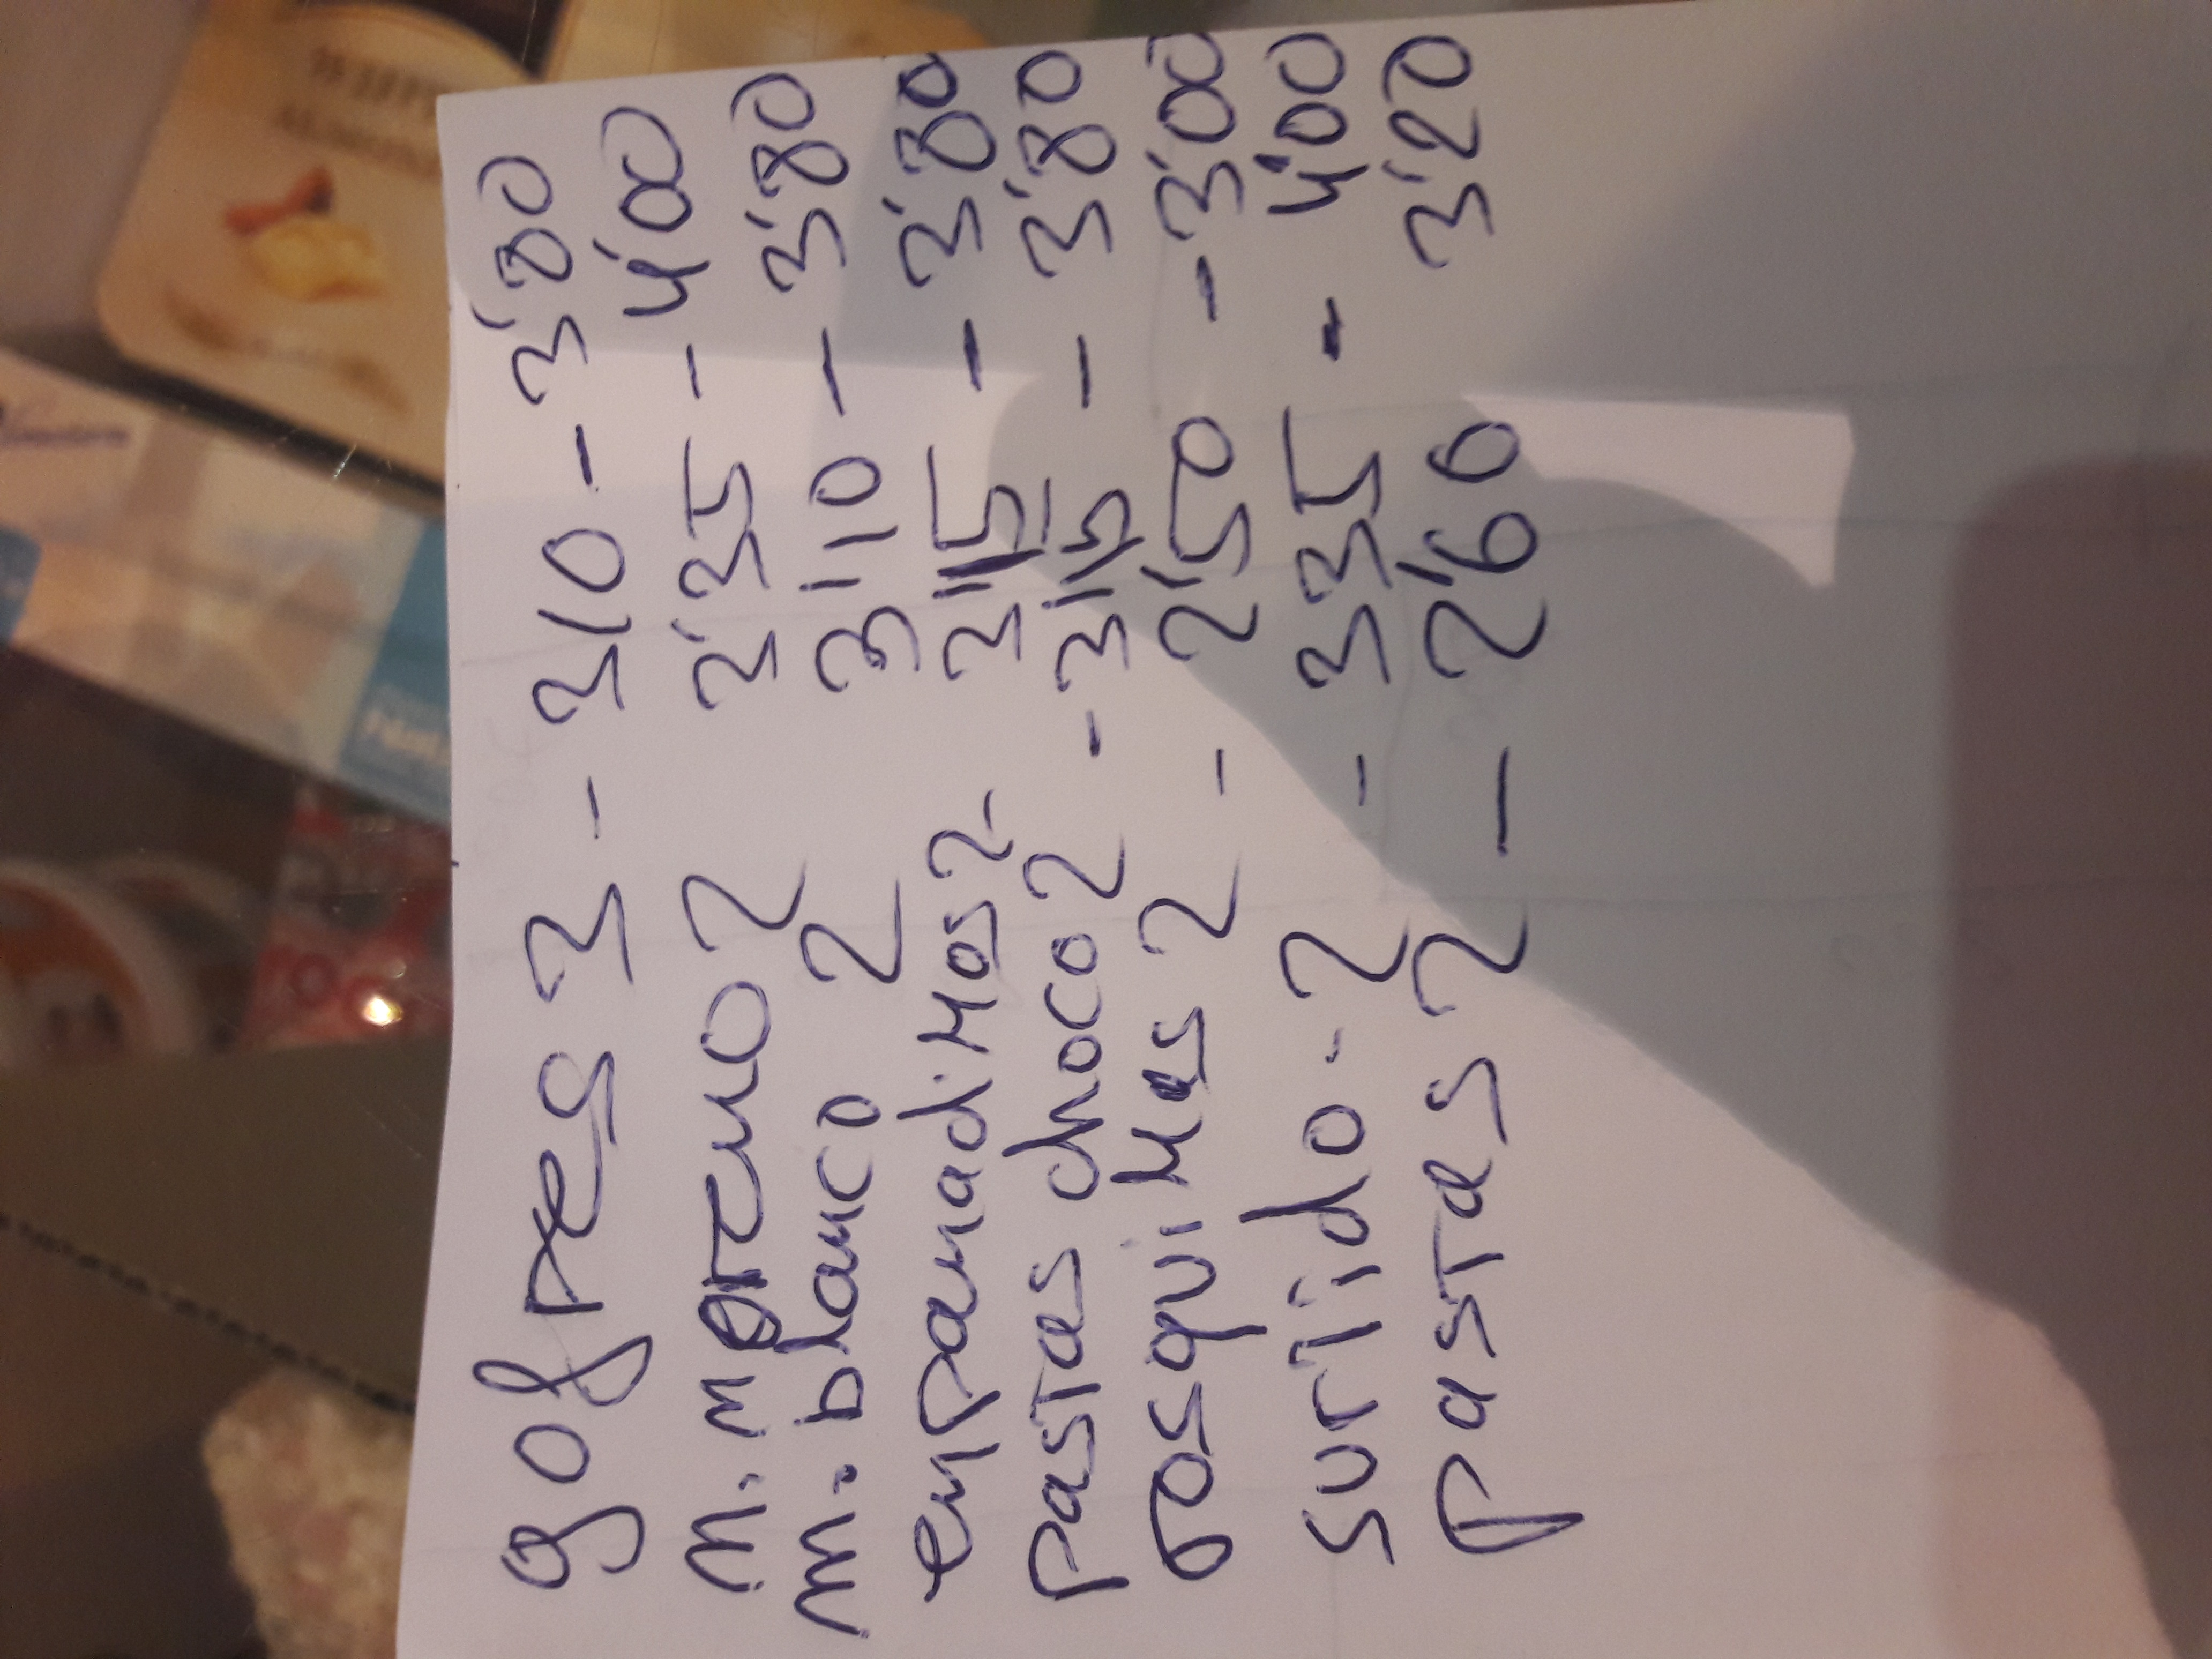 gofres 3 - 310 - 3'80
M. Moreno 2 3'35 - 4'00
M. blanco 2 3'10 - 3'80
empanadillas 2 - 3'15 - 3'80
pastas choco 2 - 3'15 - 3'80
rosquillas 2 - 2'50 - 3'00
surtido - 2 - 335 - 4'00
pastas 2 - 2'60 3'20